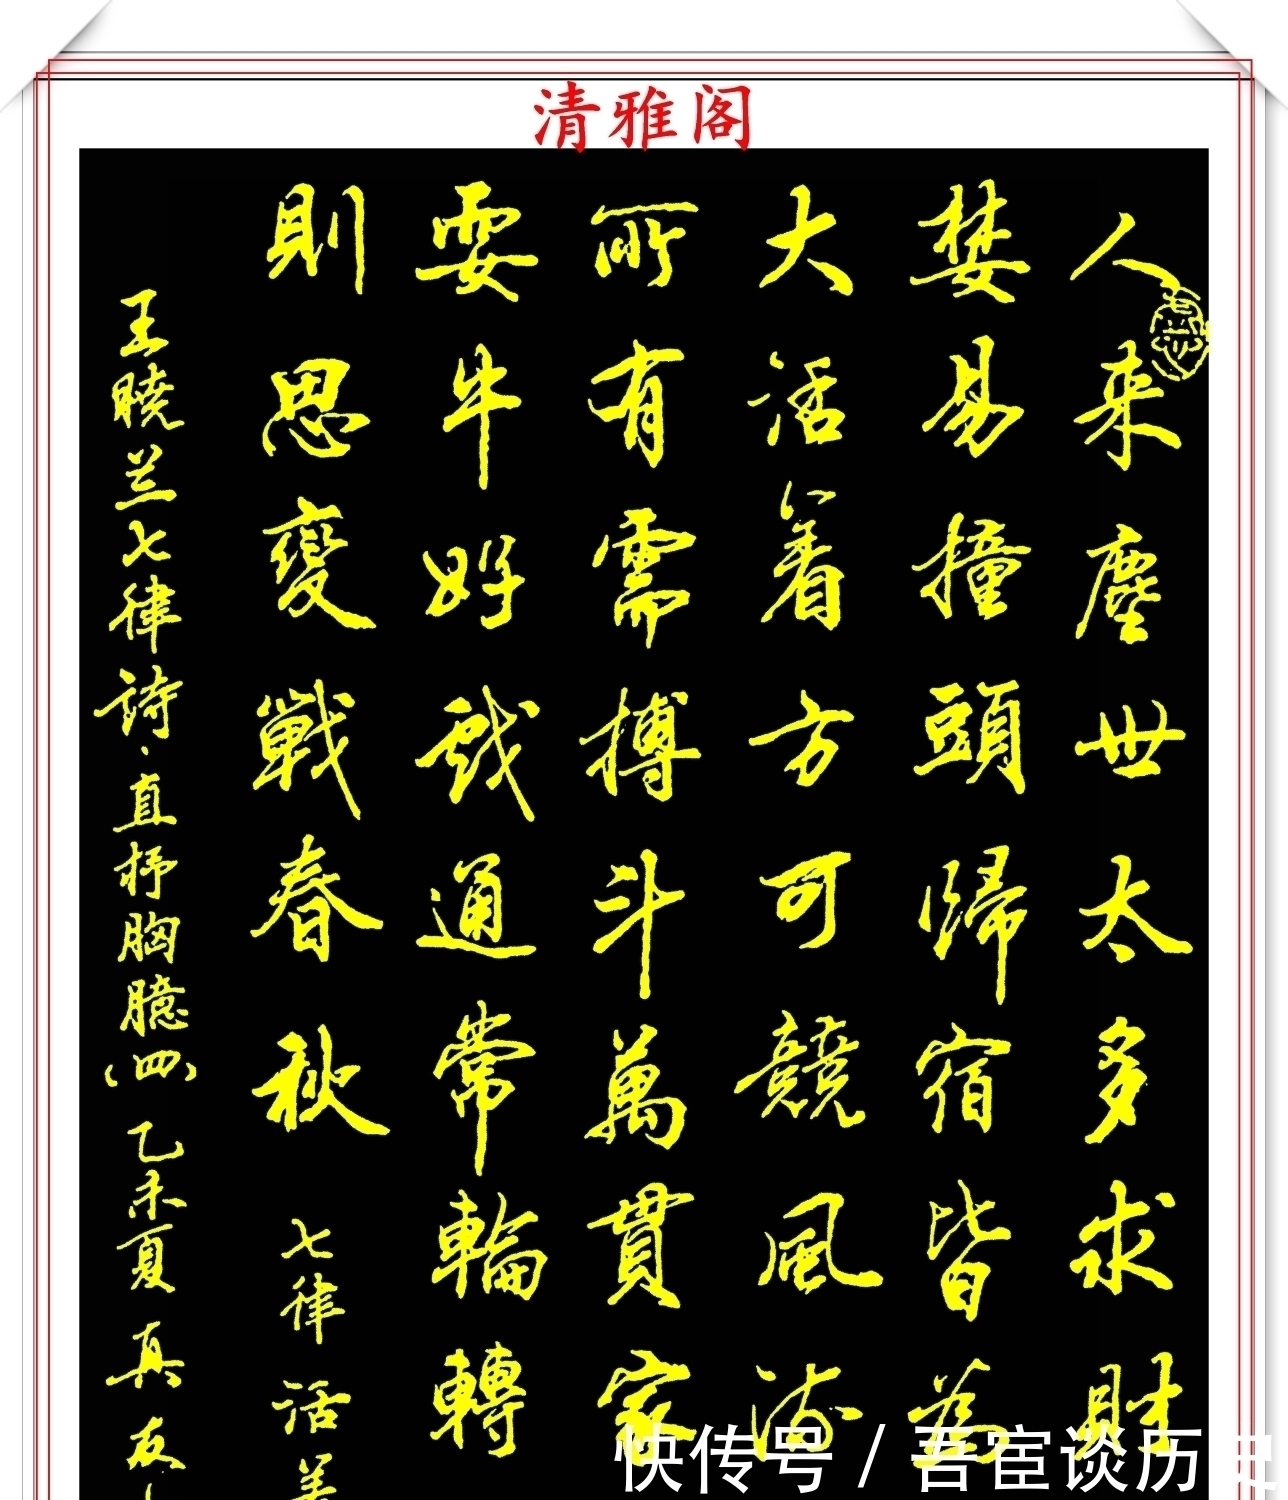 清雅阁
人来塵世太多求財
婪易撞頭歸宿皆為
大活着方可競風流
所有需搏斗萬貫家
耍牛好戲通常輪轉
則思變戰春秋 七律 活着
王曉兰七律詩·直抒胸臆(四) 乙未夏 真友
快传号/吾宦谈历史